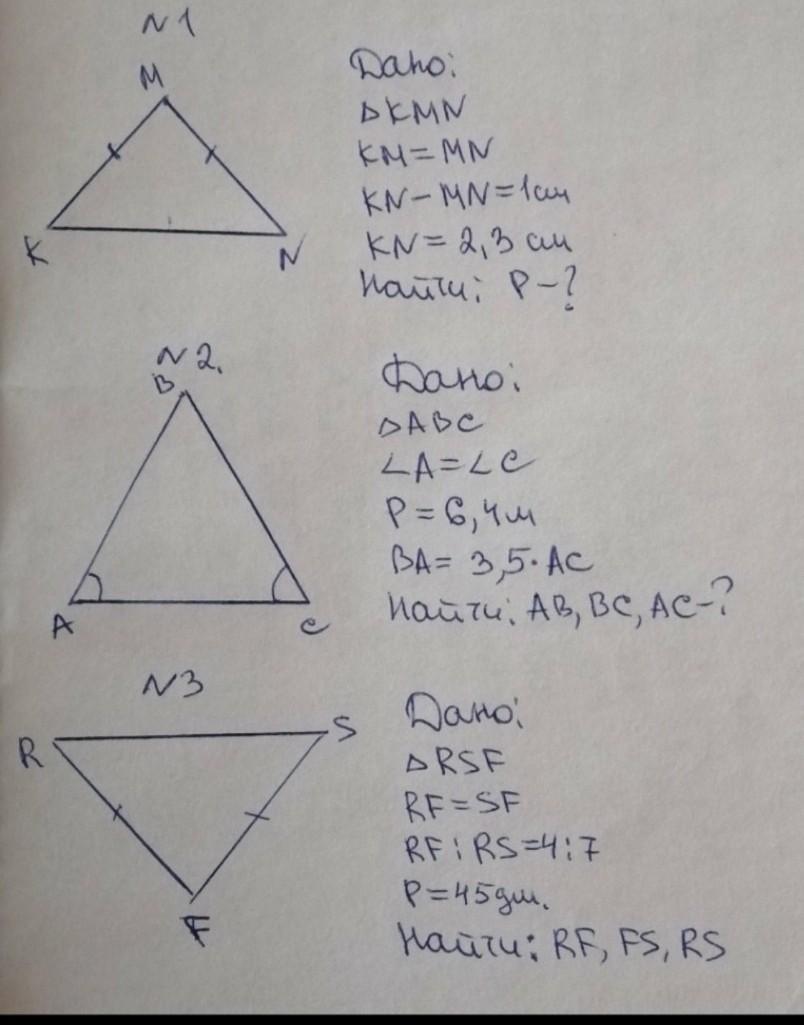 N1
M
K
N
Дано:
△KMN
KM=MN
KN-MN=1см
KN=2,3 см
Найти: P-?
N2.
B
A
C
Дано:
△ABC
∠A=∠C
P=6,4м
BA=3,5·AC
Найти: AB, BC, AC-?
N3
R
S
F
Дано:
△RSF
RF=SF
RF:RS=4:7
P=45дм.
Найти: RF, FS, RS